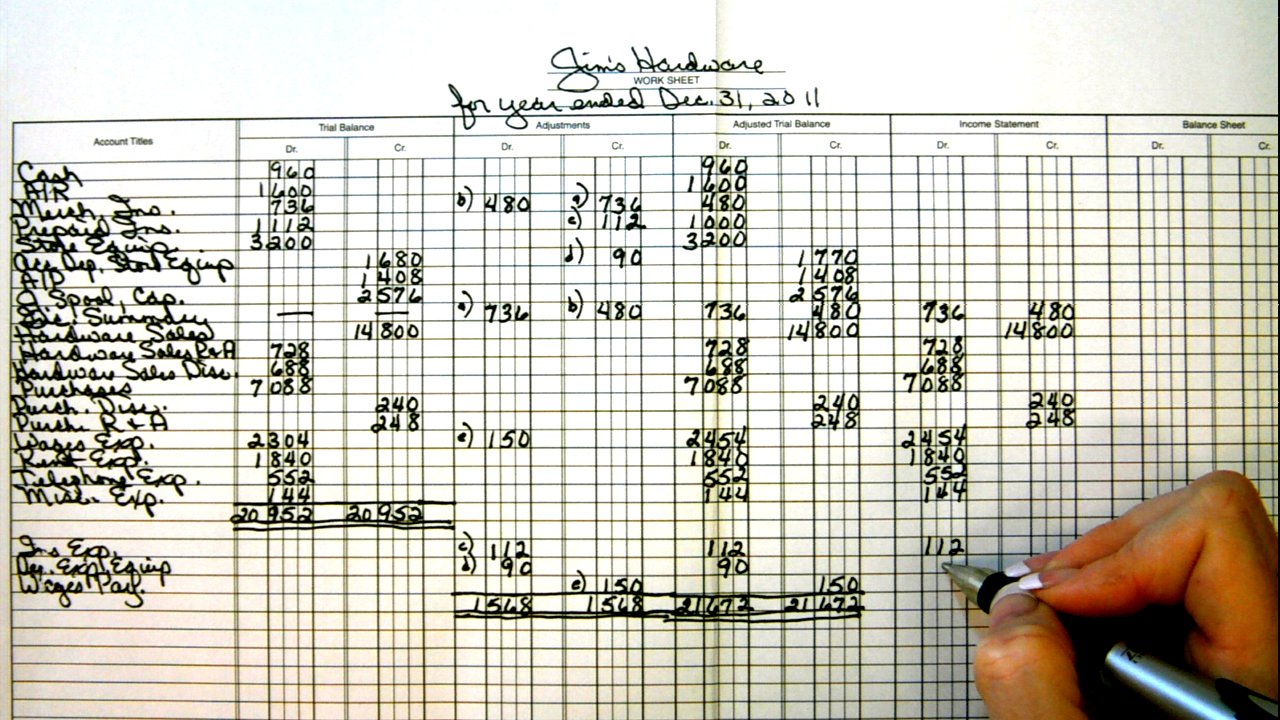 Jim's Hardware
WORK SHEET
for year ended Dec. 31, 2011
Account Titles Trial Balance Adjustments Adjusted Trial Balance Income Statement Balance Sheet
Dr. Cr. Dr. Cr. Dr. Cr. Dr. Cr. Dr. Cr.
Cash 960 960
A/R 1600 1600
Merch. Ins. 736 b) 480 a) 736 480
Prepaid Ins. 1112 c) 112 1000
Store Equip. 3200 3200
Acc. Dep. Store Equip 1680 d) 90 1770
A/P 1408 1408
Spool, Cap. 2576 2576
Inc. Summary — — a) 736 b) 480 736 480 736 480
Hardware Sales 14800 14800 14800
Hardware Sales R&A 728 728 728
Hardware Sales Disc. 688 688 688
Purchases 7088 7088 7088
Purch. Disc. 240 240 240
Purch. R & A 248 248 248
Wages Exp. 2304 e) 150 2454 2454
Rent Exp. 1840 1840 1840
Telephone Exp. 552 552 552
Misc. Exp. 144 144 144
20952 20952
Ins Exp. c) 112 112 112
Dep. Exp. Equip d) 90 90
Wages Pay. e) 150 150
1568 1568 21672 21672